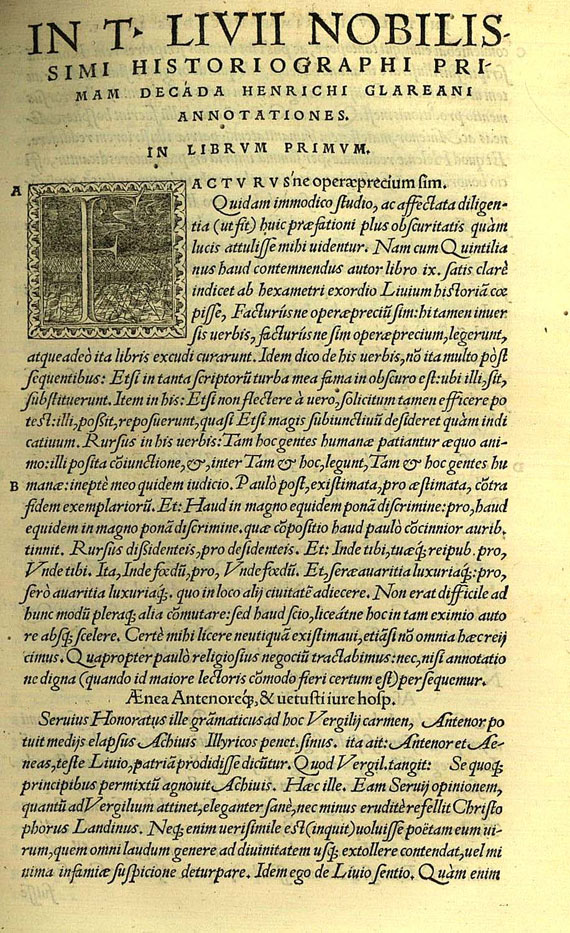 IN T. LIVII NOBILIS-
SIMI HISTORIOGRAPHI PRI-
MAM DECADA HENRICHI GLAREANI
ANNOTATIONES.
IN LIBRVM PRIMVM.
A
FACTVRVS'ne operæprecium sim.
Quidam immodico studio, ac affectata diligen-
tia (ut fit) huic præfationi plus obscuritatis quàm
lucis attulisse mihi uidentur. Nam cum Quintilia
nus haud contemnendus autor libro ix. satis clarè
indicet ab hexametri exordio Liuium historiã cœ
pisse, Facturúsne operæpreciũ sim: hi tamen inuer
sis uerbis, facturúsne sim operæprecium, legerunt,
atque adeò ita libris excudi curarunt. Idem dico de his uerbis, nõ ita multo pòst
sequentibus: Etsi in tanta scriptorũ turba mea fama in obscuro est: ubi illi, sit,
substituerunt. Item in his: Etsi non flectere à uero, solicitum tamen efficere po
test: illi, poßit, reposuerunt, quasi Etsi magis subiunctiuũ desideret quàm indi
catiuum. Rursus in his uerbis: Tam hoc gentes humanæ patiantur æquo ani-
mo: illi posita cõiunctione, &, inter Tam & hoc, legunt, Tam & hoc gentes hu
B manæ: ineptè meo quidem iudicio. Paulò post, existimata, pro æstimata, cõtra
fidem exemplariorũ. Et: Haud in magno equidem ponã discrimine: pro, haud
equidem in magno ponã discrimine. quæ cõpositio haud paulò cõcinnior aurib.
tinnit. Rursus dißidenteis, pro desidenteis. Et: Inde tibi, tuæq; reipub. pro,
Vnde tibi. Ita, Inde fœdũ, pro, Vnde fœdũ. Et, seræ auaritia luxuriaq;: pro,
serò auaritia luxuriaq;. quo in loco alij ciuitatẽ adiecere. Non erat difficile ad
hunc modũ pleraq; alia cõmutare: sed haud scio, liceátne hoc in tam eximio auto
re absq; scelere. Certè mihi licere neutiquã existimaui, etiãsi nõ omnia hæc reij
cimus. Quapropter paulò religiosius negociũ tractabimus: nec, nisi annotatio
ne digna (quando id maiore lectoris cõmodo fieri certum est) persequemur.
Ænea Antenoreq;, & uetusti iure hosp.
Seruius Honoratus ille grãmaticus ad hoc Vergilij carmen, Antenor po
tuit medijs elapsus Achiuis Illyricos penet. sinus. ita ait: Antenor et Ae-
neas, teste Liuio, patriã prodidisse dicũtur. Quod Vergil. tangit: Se quoq;
principibus permixtũ agnouit Achiuis. Hæc ille. Eam Seruij opinionem,
quantũ ad Vergilium attinet, eleganter sanè, nec minus eruditè refellit Christo
phorus Landinus. Neq; enim uerisimile est (inquit) uoluisse poëtam eum ui-
rum, quem omni laudum genere ad diuinitatem usq; extollere contendat, uel mi
nima infamiæ suspicione deturpare. Idem ego de Liuio sentio. Quàm enim